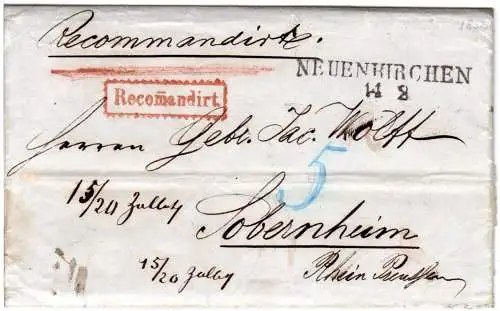 Recommandirt.
NEUENKIRCHEN
14 8
Recom̃andirt.
Herren Gebr. Jac. Wolff
5
15/20 Zollby
Sobernheim
15/20 Zollby
Rhein Preussen